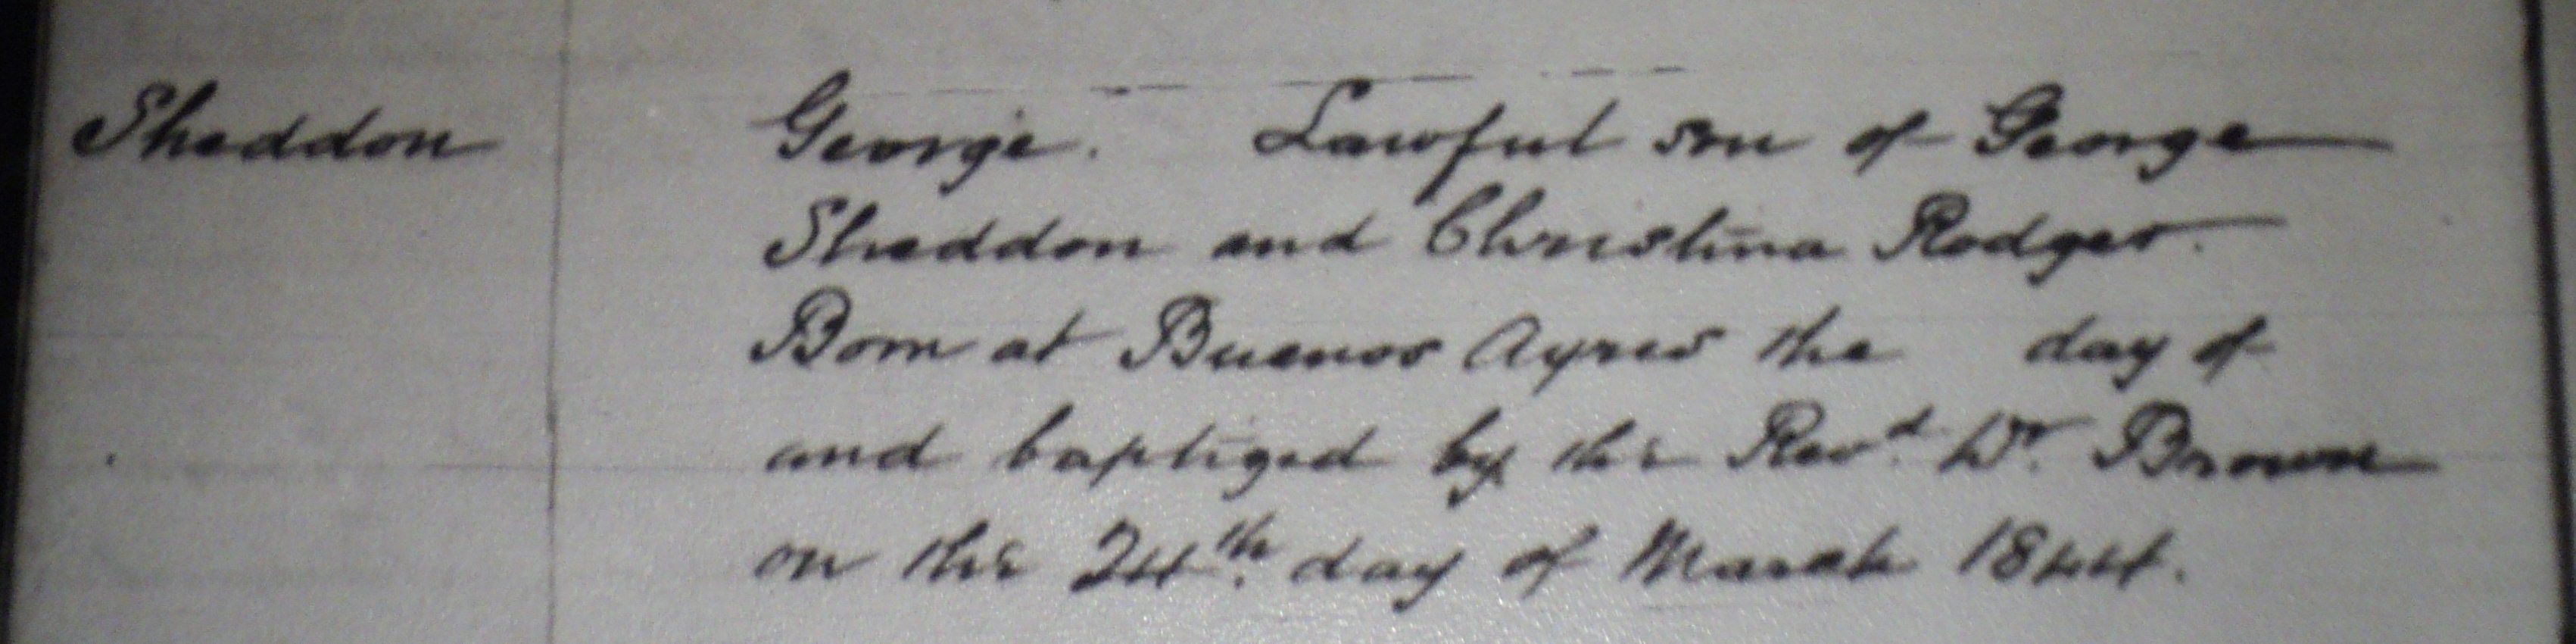 Sheddon
George. Lawful son of George
Sheddon and Christina Rodger.
Born at Buenos Ayres the day of
and baptized by the Revd. Dr. Brown
on the 24th. day of March 1844.